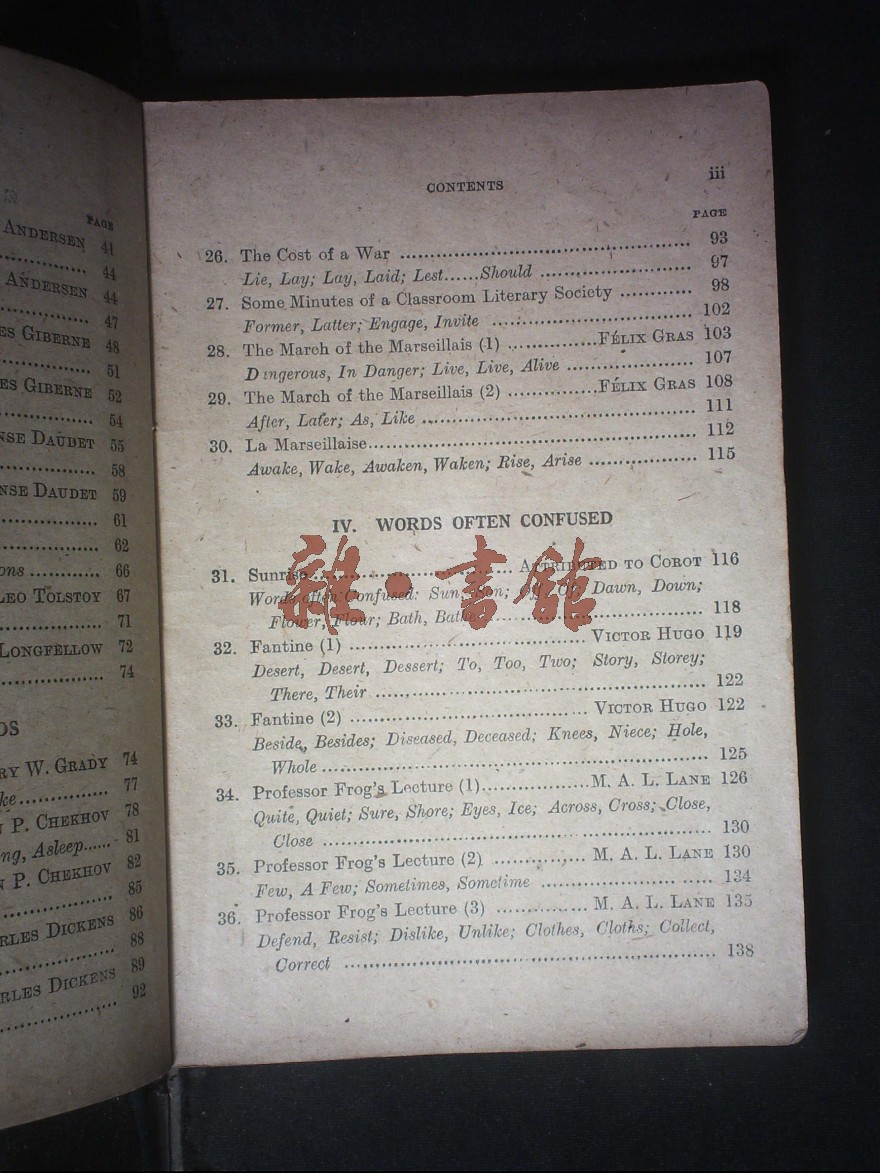 PAGE
ANDERSEN 41
44
ANDERSEN 44
47
ES GIBERNE 48
51
ES GIBERNE 52
54
NSE DAUDET 55
58
NSE DAUDET 59
61
62
ons ............ 66
LEO TOLSTOY 67
71
LONGFELLOW 72
74
DS
RY W. GRADY 74
ke............... 77
N P. CHEKHOV 78
ng, Asleep...... 81
N P. CHEKHOV 82
85
RLES DICKENS 86
88
RLES DICKENS 89
92
CONTENTS iii
PAGE
26. The Cost of a War ........ 93
Lie, Lay; Lay, Laid; Lest......Should ........ 97
27. Some Minutes of a Classroom Literary Society ............ 98
Former, Latter; Engage, Invite ........ 102
28. The March of the Marseillais (1) ...............FÉLIX GRAS 103
Dangerous, In Danger; Live, Live, Alive ........ 107
29. The March of the Marseillais (2) ...............FÉLIX GRAS 108
After, Later; As, Like ........ 111
30. La Marseillaise........ 112
Awake, Wake, Awaken, Waken; Rise, Arise ........ 115
IV. WORDS OFTEN CONFUSED
31. Sunrise........ ATTRIBUTED TO COROT 116
Words often Confused: Sun, Son; Off, Of; Dawn, Down;
Flower, Flour; Bath, Bathe ........ 118
32. Fantine (1) ........ VICTOR HUGO 119
Desert, Desert, Dessert; To, Too, Two; Story, Storey;
There, Their ........ 122
33. Fantine (2) ........ VICTOR HUGO 122
Beside, Besides; Diseased, Deceased; Knees, Niece; Hole,
Whole ........ 125
34. Professor Frog's Lecture (1)........M. A. L. LANE 126
Quite, Quiet; Sure, Shore; Eyes, Ice; Across, Cross; Close,
Close ........ 130
35. Professor Frog's Lecture (2) ............... M. A. L. LANE 130
Few, A Few; Sometimes, Sometime ........ 134
36. Professor Frog's Lecture (3) ............... M. A. L. LANE 135
Defend, Resist; Dislike, Unlike; Clothes, Cloths; Collect,
Correct ........ 138
雜·書館